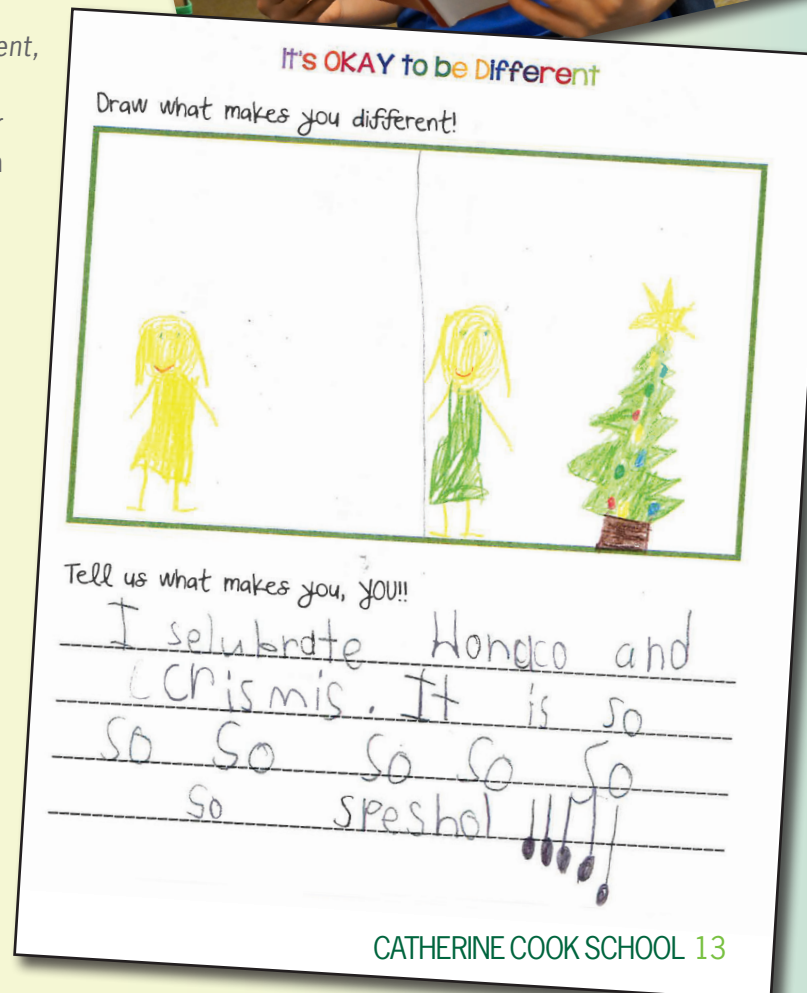 ent,
It's OKAY to be Different
Draw what makes you different!
Tell us what makes you, YOU!!
I selubrate Honaco and
crismis. It is so
so so so so so
so speshol !!!!!
CATHERINE COOK SCHOOL 13